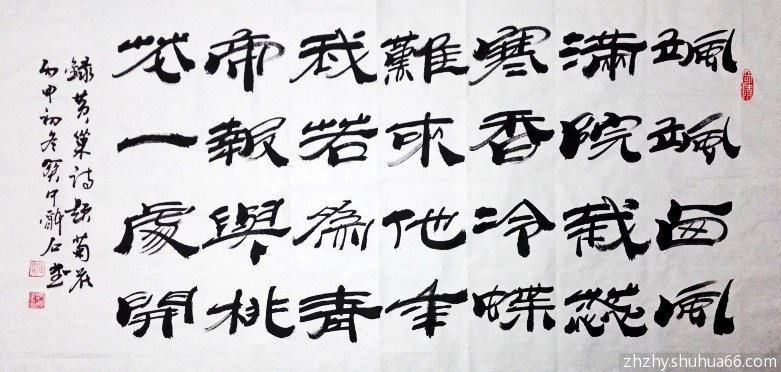 颯颯西風
滿院栽蕊
寒香冷蝶
難來他年
我若為青
帝報與桃
花一處開
錄黃巢詩題菊花
丙申初冬 石書
zhzhy.shuhua66.com